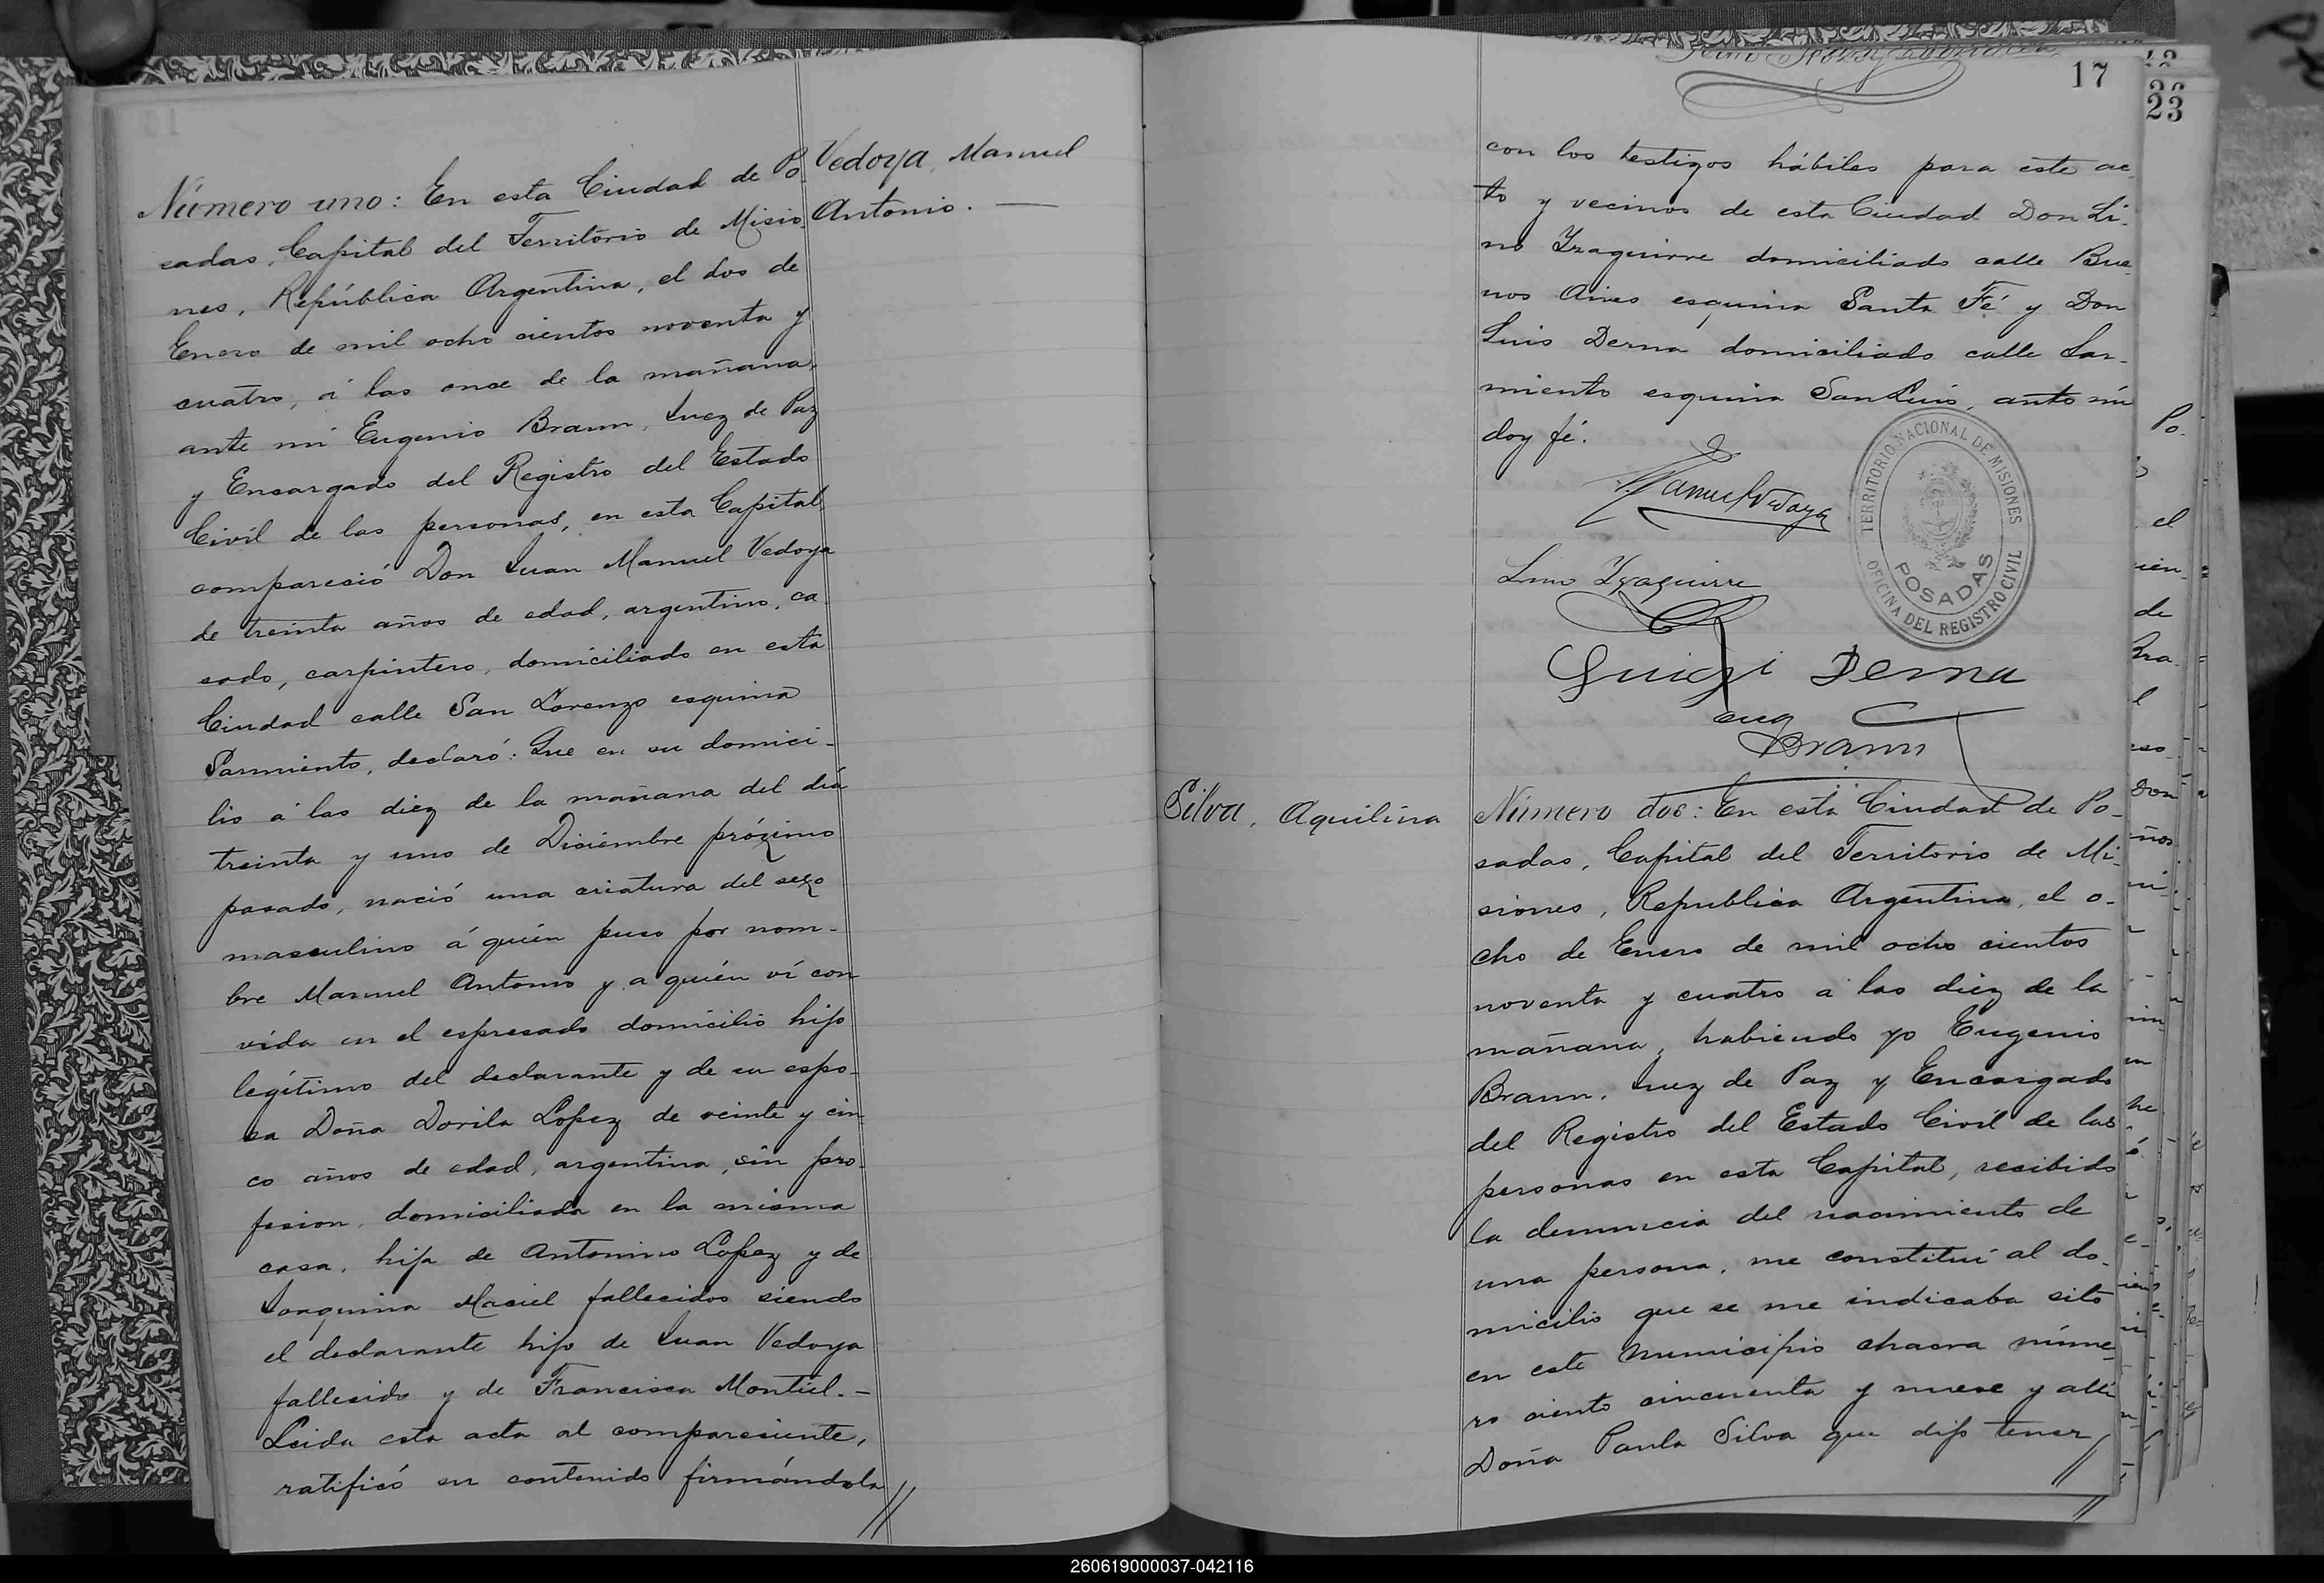 Vedoya, Manuel
Antonio. —
Número uno: En esta Ciudad de Po
sadas, Capital del Territorio de Misio
nes, República Argentina, el dos de
Enero de mil ocho cientos noventa y
cuatro, á las once de la mañana,
ante mi Eugenio Braun, Juez de Paz
y Encargado del Registro del Estado
Civil de las personas, en esta Capital
compareció Don Juan Manuel Vedoya
de treinta años de edad, argentino, ca
sado, carpintero, domiciliado en esta
Ciudad calle San Lorenzo esquina
Sarmiento, declaró: Que en su domici-
lio á las diez de la mañana del día
treinta y uno de Diciembre próximo
pasado, nació una criatura del sexo
masculino á quién puso por nom-
bre Manuel Antonio y a quién ví con
vida en el espresado domicilio hijo
legítimo del declarante y de su espo-
sa Doña Dorila Lopez de veinte y cin
co años de edad, argentina, sin pro-
fesion, domiciliada en la misma
casa, hija de Antonino Lopez y de
Joaquina Maciel fallecidos siendo
el declarante hijo de Juan Vedoya
fallecido y de Francisca Montiel. —
Leida esta acta al compareciente,
ratificó su contenido firmándola
//
17
23
con los testigos hábiles para este ac
to y vecinos de esta Ciudad Don Li-
no Yzaguirre domiciliado calle Bue
nos Aires esquina Santa Fé y Don
Luis Derna domiciliado calle Sar-
miento esquina San Luis, ante mi
doy fé.
Manuel Vedoya
TERRITORIO NACIONAL DE MISIONES
POSADAS
OFICINA DEL REGISTRO CIVIL
Lino Yzaguirre
Luigi Derna
Eug
Braun
Silva, Aquilina
Número dos: En esta Ciudad de Po-
sadas, Capital del Territorio de Mi-
siones, Republica Argentina, el o-
cho de Enero de mil ocho cientos
noventa y cuatro a las diez de la
mañana, habiendo yo Eugenio
Braun, Juez de Paz y Encargado
del Registro del Estado Civil de las
personas en esta Capital, recibido
la denuncia del nacimiento de
una persona, me constituí al do-
micilio que se me indicaba sito
en este Municipio chacra núme-
ro ciento cincuenta y nueve y allí
Doña Paula Silva que dijo tener
//
260619000037-042116